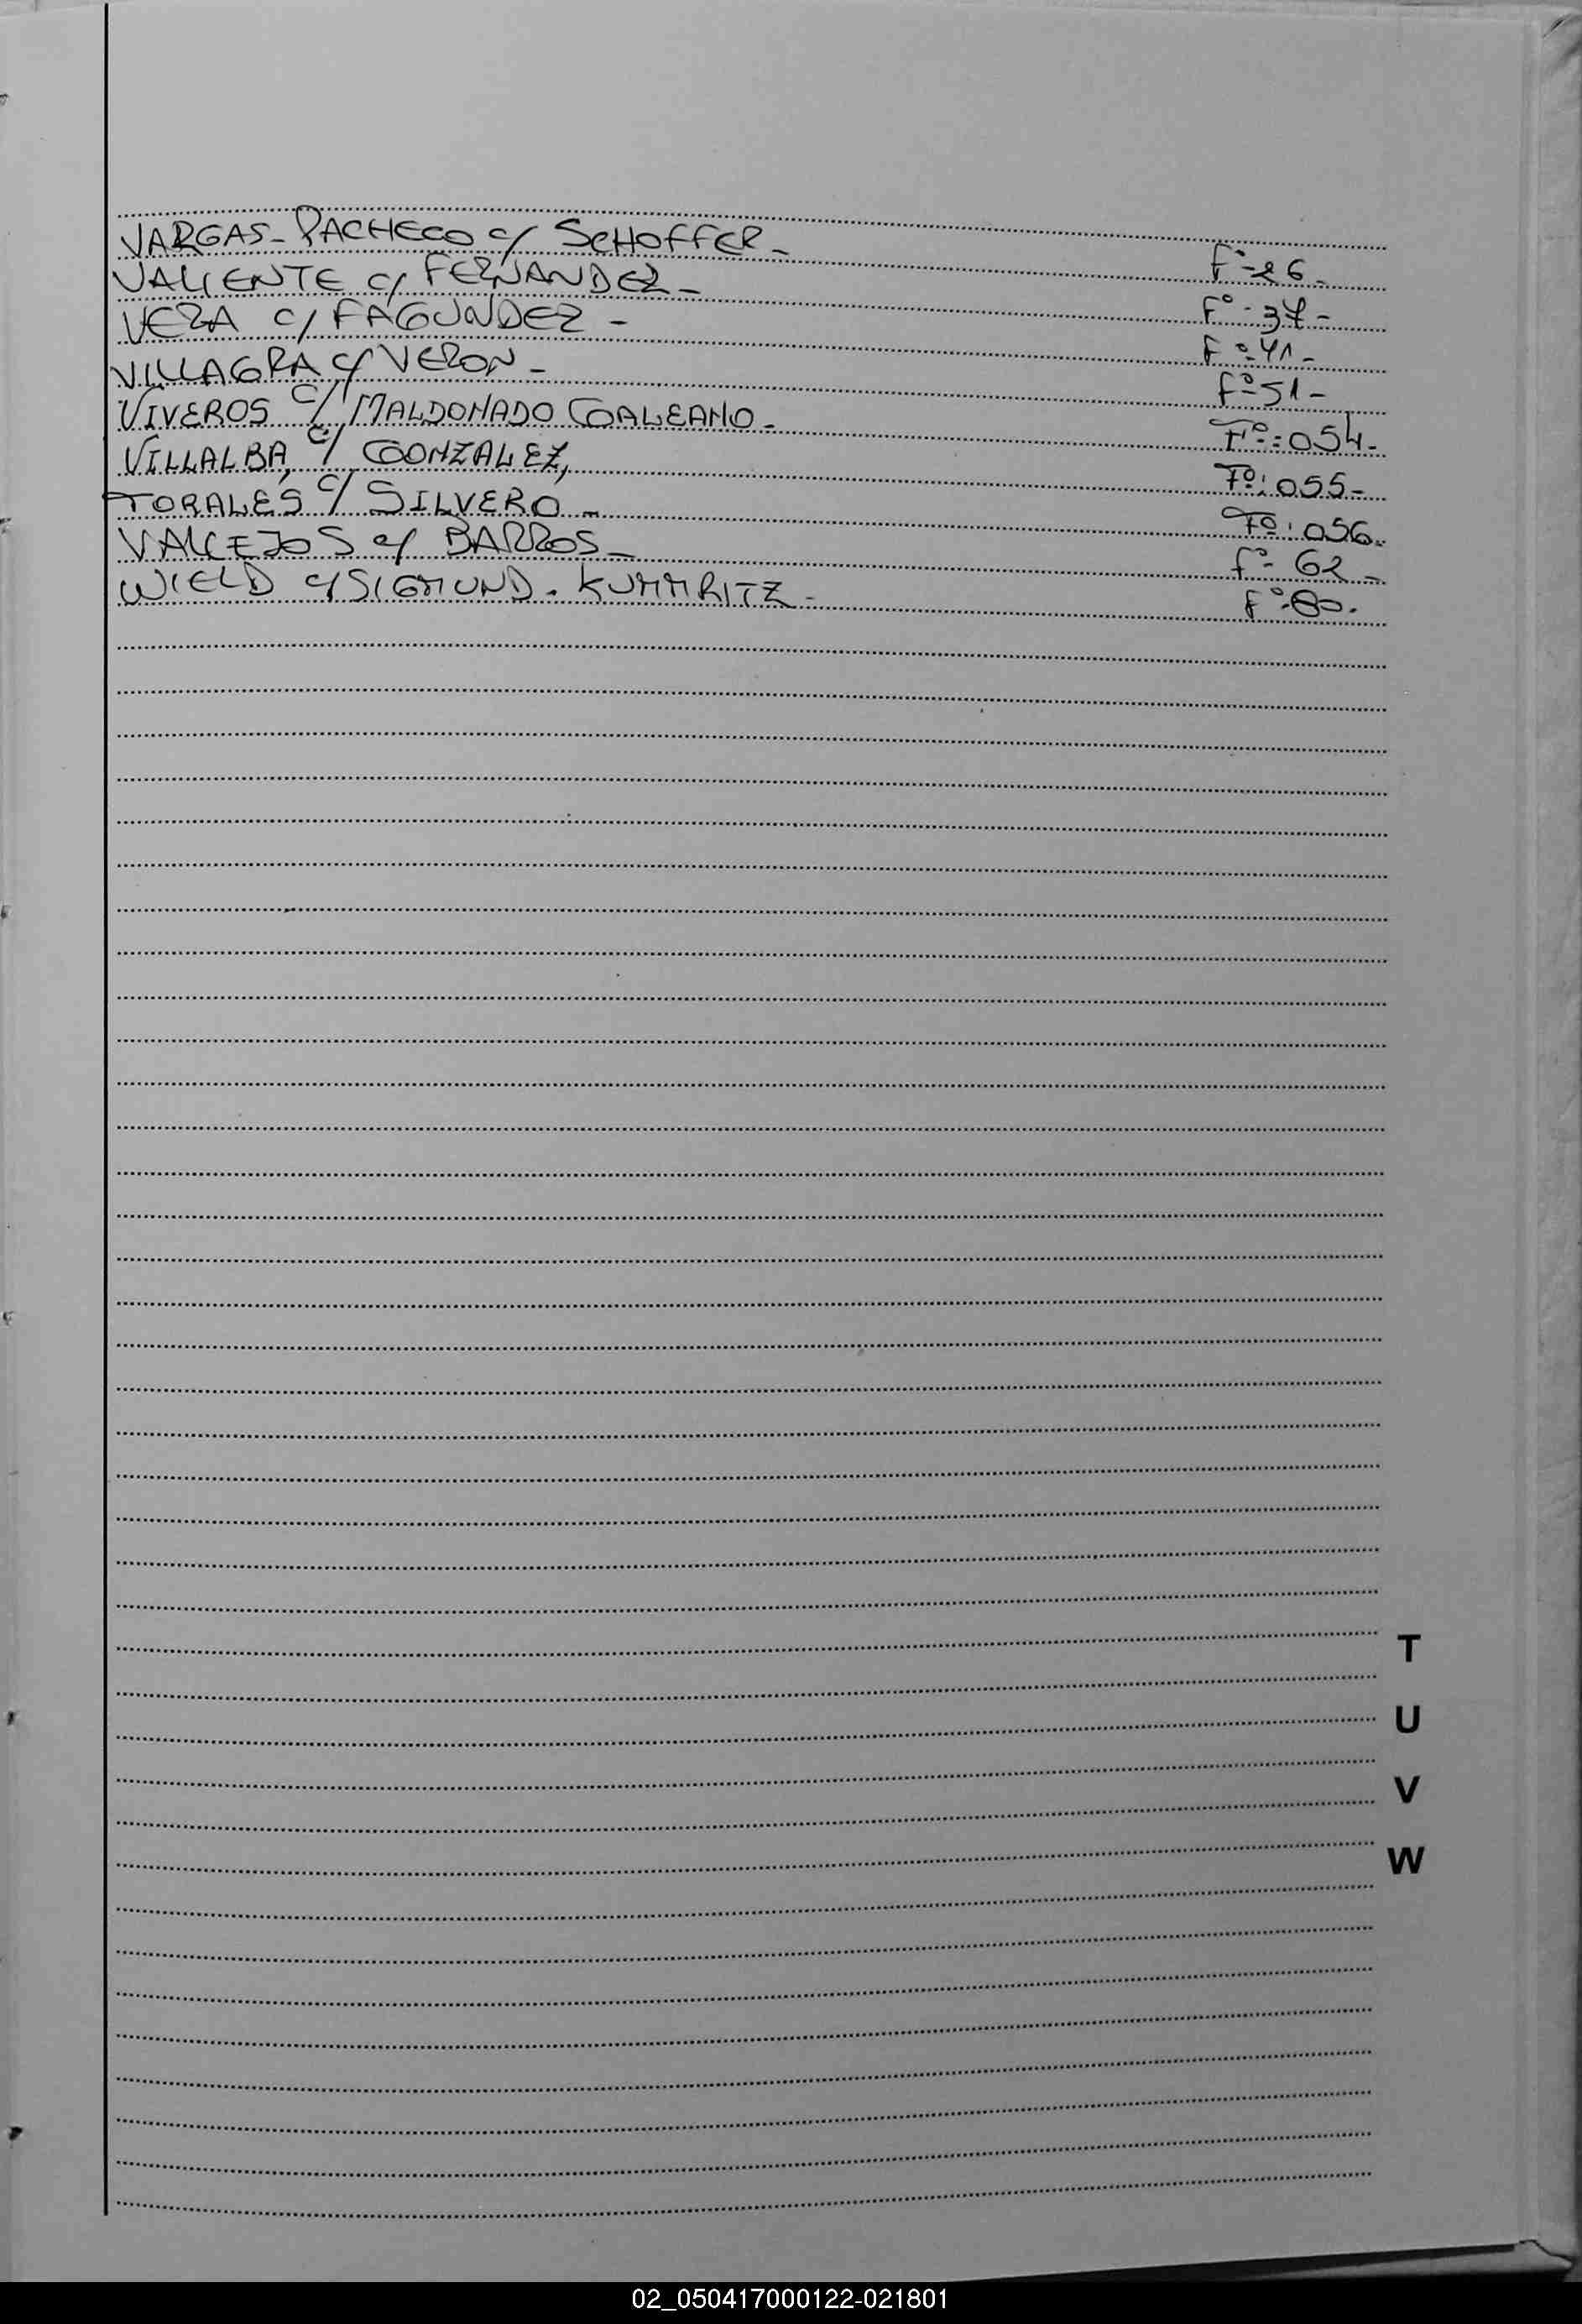 VARGAS - PACHECO c/ SCHOFFER - F° - 26 -
VALIENTE c/ FERNANDEZ - F° - 37 -
VERA c/ FAGUNDEZ - F° - 41 -
VILLAGRA c/ VERON - F° - 51 -
VIVEROS c/ MALDONADO GALEANO - Fº: 054 -
VILLALBA c/ GONZALEZ, Fº: 055 -
TORALES c/ SILVERO - Fº: 056 -
VALLEJOS c/ BARROS - f° - 62 -
WIELD c/ SIGMUND - KUMMRITZ - F° - 80 -
T
U
V
W
02_050417000122-021801